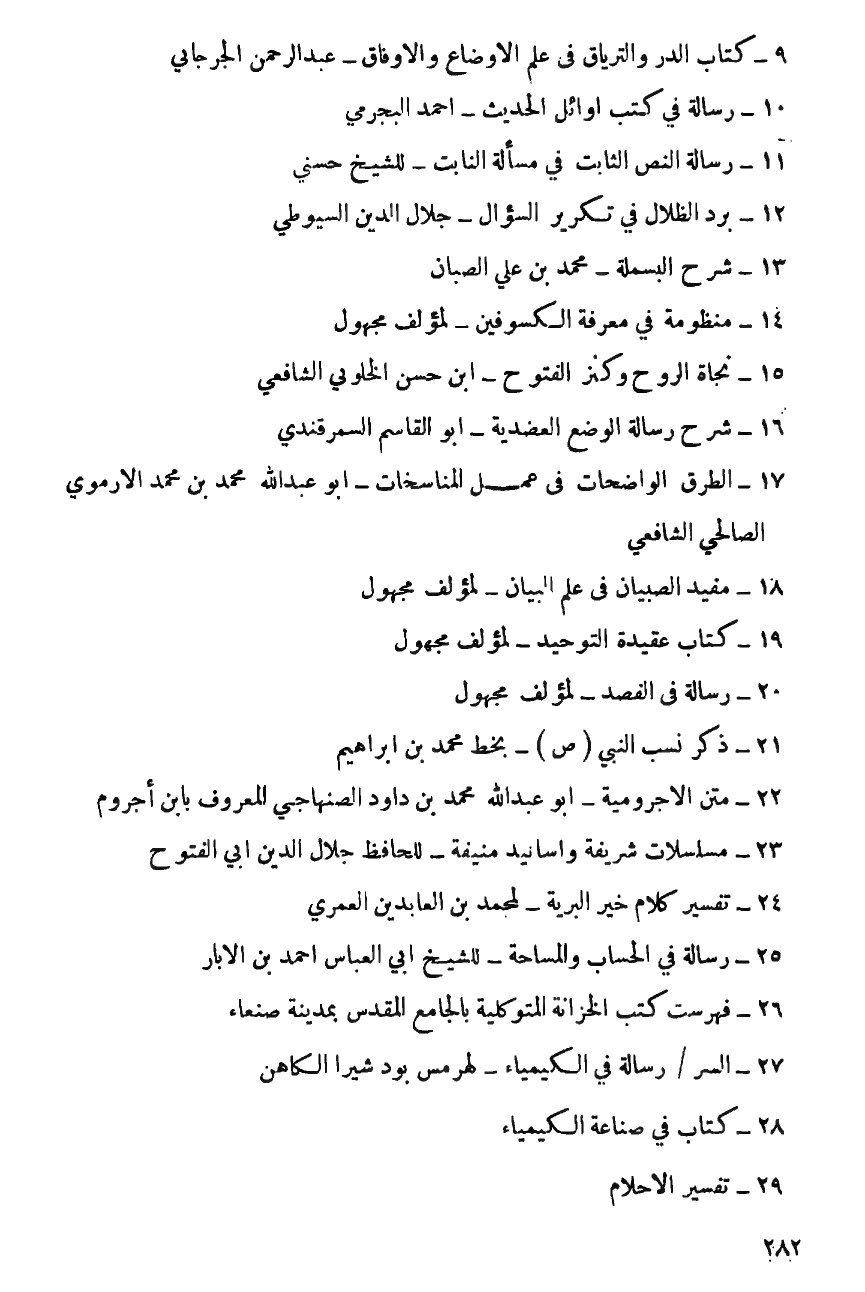 ٩ ــ كتاب الدر والترياق فى علم الاوضاع والاوفاق ــ عبدالرحمن الجرجاني
١٠ ــ رسالة في كتب اوائل الحديث ــ احمد البجرمي
١١ ــ رسالة النص الثابت في مسألة النابت ــ للشيخ حسني
١٢ ــ برد الظلال في تكرير السؤال ــ جلال الدين السيوطي
١٣ ــ شرح البسملة ــ محمد بن علي الصبان
١٤ ــ منظومة في معرفة الكسوفين ــ لمؤلف مجهول
١٥ ــ نجاة الروح وكنز الفتوح ــ ابن حسن الخلوبي الشافعي
١٦ ــ شرح رسالة الوضع العضدية ــ ابو القاسم السمرقندي
١٧ ــ الطرق الواضحات فى عمل المناسخات ــ ابو عبدالله محمد بن محمد الارموي
الصالحي الشافعي
١٨ ــ مفيد الصبيان فى علم البيان ــ لمؤلف مجهول
١٩ ــ كتاب عقيدة التوحيد ــ لمؤلف مجهول
٢٠ ــ رسالة فى الفصد ــ لمؤلف مجهول
٢١ ــ ذكر نسب النبي ( ص ) ــ بخط محمد بن ابراهيم
٢٢ ــ متن الاجرومية ــ ابو عبدالله محمد بن داود الصنهاجي المعروف بابن أجروم
٢٣ ــ مسلسلات شريفة واسانيد منيفة ــ للحافظ جلال الدين ابي الفتوح
٢٤ ــ تفسير كلام خير البرية ــ لمحمد بن العابدين العمري
٢٥ ــ رسالة في الحساب والمساحة ــ للشيخ ابي العباس احمد بن الابار
٢٦ ــ فهرست كتب الخزانة المتوكلية بالجامع المقدس بمدينة صنعاء
٢٧ ــ السر / رسالة في الكيمياء ــ لهرمس بود شيرا الكاهن
٢٨ ــ كتاب في صناعة الكيمياء
٢٩ ــ تفسير الاحلام
٢٨٢